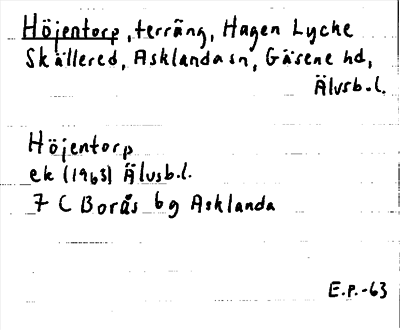 Höjentorp, terräng, Hagen Lycke
Skällered, Asklanda sn, Gäsene hd,
Älvsb. l.
Höjentorp
ek (1963) Älvsb. l.
7 C Borås 6g Asklanda
E.P.-63